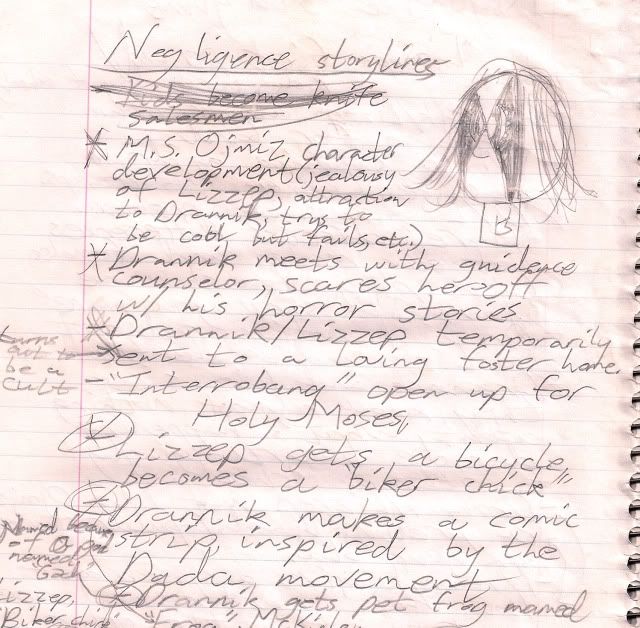 Negligence storylines
Kids become knife
salesmen
* M.S. Ojmiz character
development (jealousy
of Lizzep, attraction
to Drannik, trys to
be cool but fails, etc.)
* Drannik meets with guidence
counselor, scares her off
w/ his horror stories.
* Drannik/Lizzep temporarily
sent to a loving foster home.
turns
out to
be a
cult
- "Interrobang" open up for
Holy Moses,
* Lizzep gets a bicycle,
becomes a "biker chick"
* Drannik makes a comic
strip, inspired by the
Dada movement
Named because
of
named
* Drannik gets pet frog named
"Frog" McKinley
Lizzep,
"Biker chick"